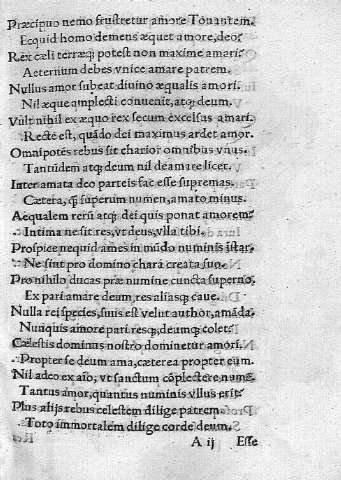 Præcipuo nemo frustretur amore Tonantem.
Ecquid homo demens æquet amore, deo?
Rex cæli terræq; potest non maxime amari?
Aeternum debes vnice amare patrem.
Nullus amor subeat diuino æqualis amori.
Nil æque amplecti conuenit, atq; deum.
Vult nihil ex æquo rex secum excelsus amari.
Recte est, quãdo dei maximus ardet amor.
Omnipotẽs rebus sit charior omnibus vnus.
Tantũdem atq; deum nil de amare licet.
Inter amata deo parteis fac esse supremas.
Cætera, q̃ superum numen, amato minus.
Aequalem rersi atq; dei quis ponat amorem?
Intima ne sit res, vt deus, vlla tibi.
Prospice nequid ames in mũdo numinis istar.
Ne sint pro domino chara creata suo.
Pro nihilo ducas præ numine cuncta superno.
Ex pari amare deum, res aliasq; caue.
Nulla rei species, suus est velut author, amãda.
Nunquis amore pari resq; deumq; colet?
Cælestis dominus nostro dominetur amori.
Propter se deum ama, cæterea propter eum.
Nil adeo ex aĩo, vt sanctum cõplectere numẽ.
Tantus amor, quantus numinis vllus erit?
Plus alijs rebus celestem dilige patrem.
Toto immortalem dilige corde deum.
A ij Esse